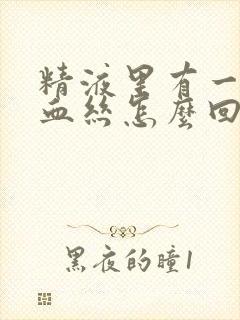 精液里有一
血丝怎麼回
黑夜的瞳1